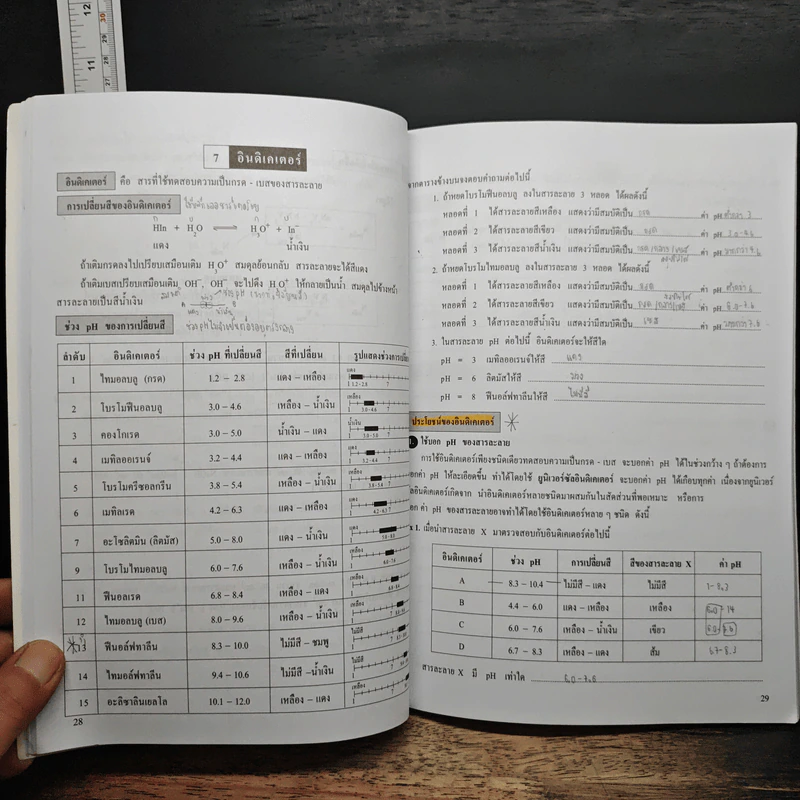 7 อินดิเคเตอร์
อินดิเคเตอร์ คือ สารที่ใช้ทดสอบความเป็นกรด - เบสของสารละลาย
การเปลี่ยนสีของอินดิเคเตอร์
HIn + H2O ⇌ H3O+ + In-
แดง น้ำเงิน
ถ้าเติมกรดลงไปเปรียบเสมือนเติม H3O+ สมดุลย้อนกลับ สารละลายจะได้สีแดง
ถ้าเติมเบสเปรียบเสมือนเติม OH-, OH- จะไปดึง H3O+ ให้กลายเป็นน้ำ สมดุลไปข้างหน้า
สารละลายเป็นสีน้ำเงิน
ช่วง pH ของการเปลี่ยนสี
ลำดับ อินดิเคเตอร์ ช่วง pH ที่เปลี่ยนสี สีที่เปลี่ยน รูปแสดงช่วงการเปลี่ย
1 ไทมอลบลู (กรด) 1.2 – 2.8 แดง – เหลือง
2 โบรโมฟีนอลบลู 3.0 – 4.6 เหลือง – น้ำเงิน
3 คองโกเรด 3.0 – 5.0 น้ำเงิน – แดง
4 เมทิลออเรนจ์ 3.2 – 4.4 แดง – เหลือง
5 โบรโมครีซอลกรีน 3.8 – 5.4 เหลือง – น้ำเงิน
6 เมทิลเรด 4.2 – 6.3 แดง – เหลือง
7 อะโซลิตมิน (ลิตมัส) 5.0 – 8.0 แดง – น้ำเงิน
9 โบรโมไทมอลบลู 6.0 – 7.6 เหลือง – น้ำเงิน
11 ฟีนอลเรด 6.8 – 8.4 เหลือง – แดง
12 ไทมอลบลู (เบส) 8.0 – 9.6 เหลือง – น้ำเงิน
13 ฟีนอล์ฟทาลีน 8.3 – 10.0 ไม่มีสี – ชมพู
14 ไทมอล์ฟทาลีน 9.4 – 10.6 ไม่มีสี – น้ำเงิน
15 อะลิซาลินเยลโล 10.1 – 12.0 เหลือง – แดง
28
จากตารางข้างบนจงตอบคำถามต่อไปนี้
1. ถ้าหยดโบรโมฟีนอลบลู ลงในสารละลาย 3 หลอด ได้ผลดังนี้
หลอดที่ 1 ได้สารละลายสีเหลือง แสดงว่ามีสมบัติเป็น กรด ค่า pH ต่ำกว่า 3
หลอดที่ 2 ได้สารละลายสีเขียว แสดงว่ามีสมบัติเป็น กรด ค่า pH 3.0-4.6
หลอดที่ 3 ได้สารละลายสีน้ำเงิน แสดงว่ามีสมบัติเป็น กรด/กลาง/เบส ค่า pH มากกว่า 4.6
2. ถ้าหยดโบรโมไทมอลบลู ลงในสารละลาย 3 หลอด ได้ผลดังนี้
หลอดที่ 1 ได้สารละลายสีเหลือง แสดงว่ามีสมบัติเป็น กรด ค่า pH ต่ำกว่า 6
หลอดที่ 2 ได้สารละลายสีเขียว แสดงว่ามีสมบัติเป็น กรด/กลาง/เบส ค่า pH 6.0-7.6
หลอดที่ 3 ได้สารละลายสีน้ำเงิน แสดงว่ามีสมบัติเป็น เบส ค่า pH มากกว่า 7.6
3. ในสารละลาย pH ต่อไปนี้ อินดิเคเตอร์จะให้สีใด
pH = 3 เมทิลออเรนจ์ให้สี แดง
pH = 6 ลิตมัสให้สี ม่วง
pH = 8 ฟีนอล์ฟทาลีนให้สี ไม่มีสี
ประโยชน์ของอินดิเคเตอร์
1. ใช้บอก pH ของสารละลาย
การใช้อินดิเคเตอร์เพียงชนิดเดียวทดสอบความเป็นกรด - เบส จะบอกค่า pH ได้ในช่วงกว้าง ๆ ถ้าต้องการ
อกค่า pH ให้ละเอียดขึ้น ทำได้โดยใช้ ยูนิเวอร์ซัลอินดิเคเตอร์ จะบอกค่า pH ได้เกือบทุกค่า เนื่องจากยูนิเวอร์
ลอินดิเคเตอร์เกิดจาก นำอินดิเคเตอร์หลายชนิดมาผสมกันในสัดส่วนที่พอเหมาะ หรือการ
อก ค่า pH ของสารละลายอาจทำได้โดยใช้อินดิเคเตอร์หลาย ๆ ชนิด ดังนี้
x 1. เมื่อนำสารละลาย X มาตรวจสอบกับอินดิเคเตอร์ต่อไปนี้
อินดิเคเตอร์ ช่วง pH การเปลี่ยนสี สีของสารละลาย X ค่า pH
A 8.3 – 10.4 ไม่มีสี – แดง ไม่มีสี 1-8.3
B 4.4 – 6.0 แดง – เหลือง เหลือง 6.0-14
C 6.0 – 7.6 เหลือง – น้ำเงิน เขียว 6.0-7.6
D 6.7 – 8.3 เหลือง – แดง ส้ม 6.7-8.3
สารละลาย X มี pH เท่าใด
29